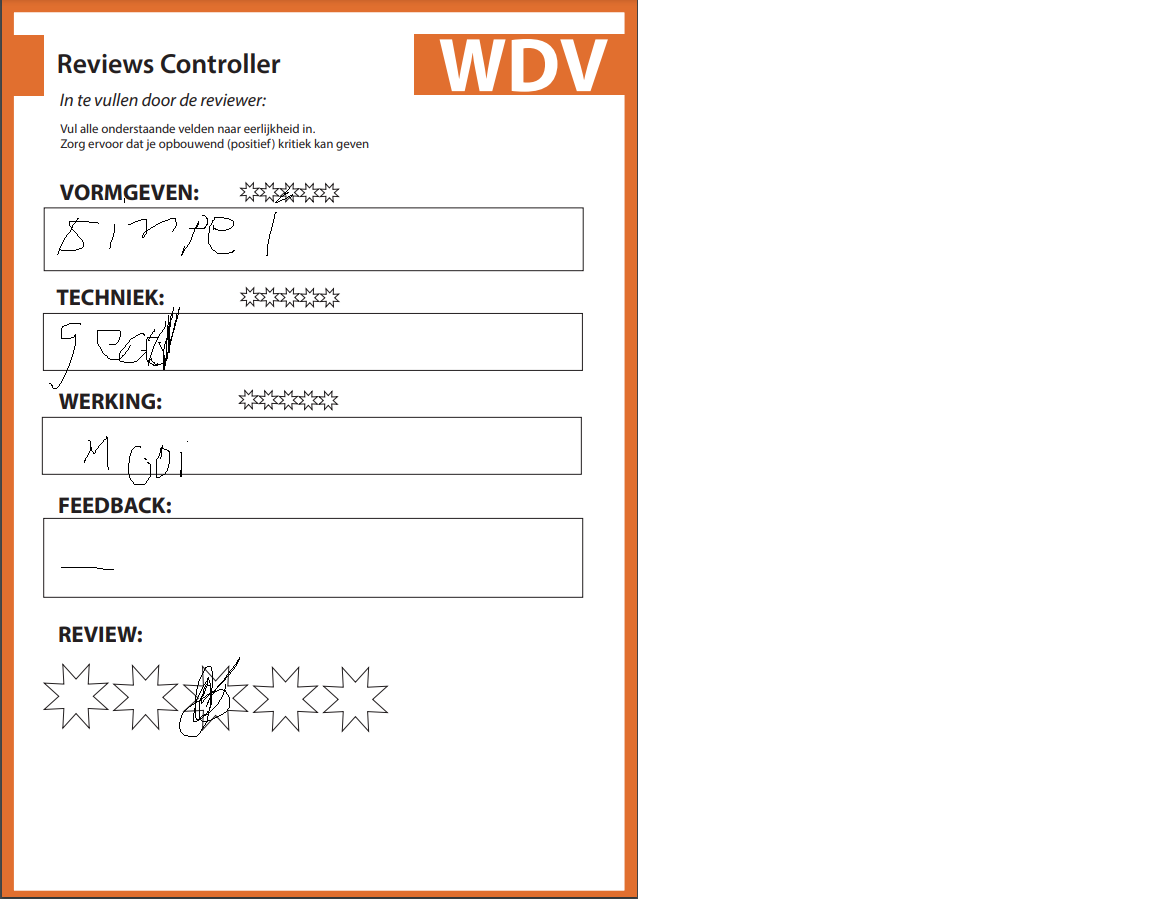 Reviews Controller
WDV
In te vullen door de reviewer:
Vul alle onderstaande velden naar eerlijkheid in.
Zorg ervoor dat je opbouwend (positief) kritiek kan geven
VORMGEVEN:
simpel
TECHNIEK:
goed
WERKING:
Mooi
FEEDBACK:
—
REVIEW: